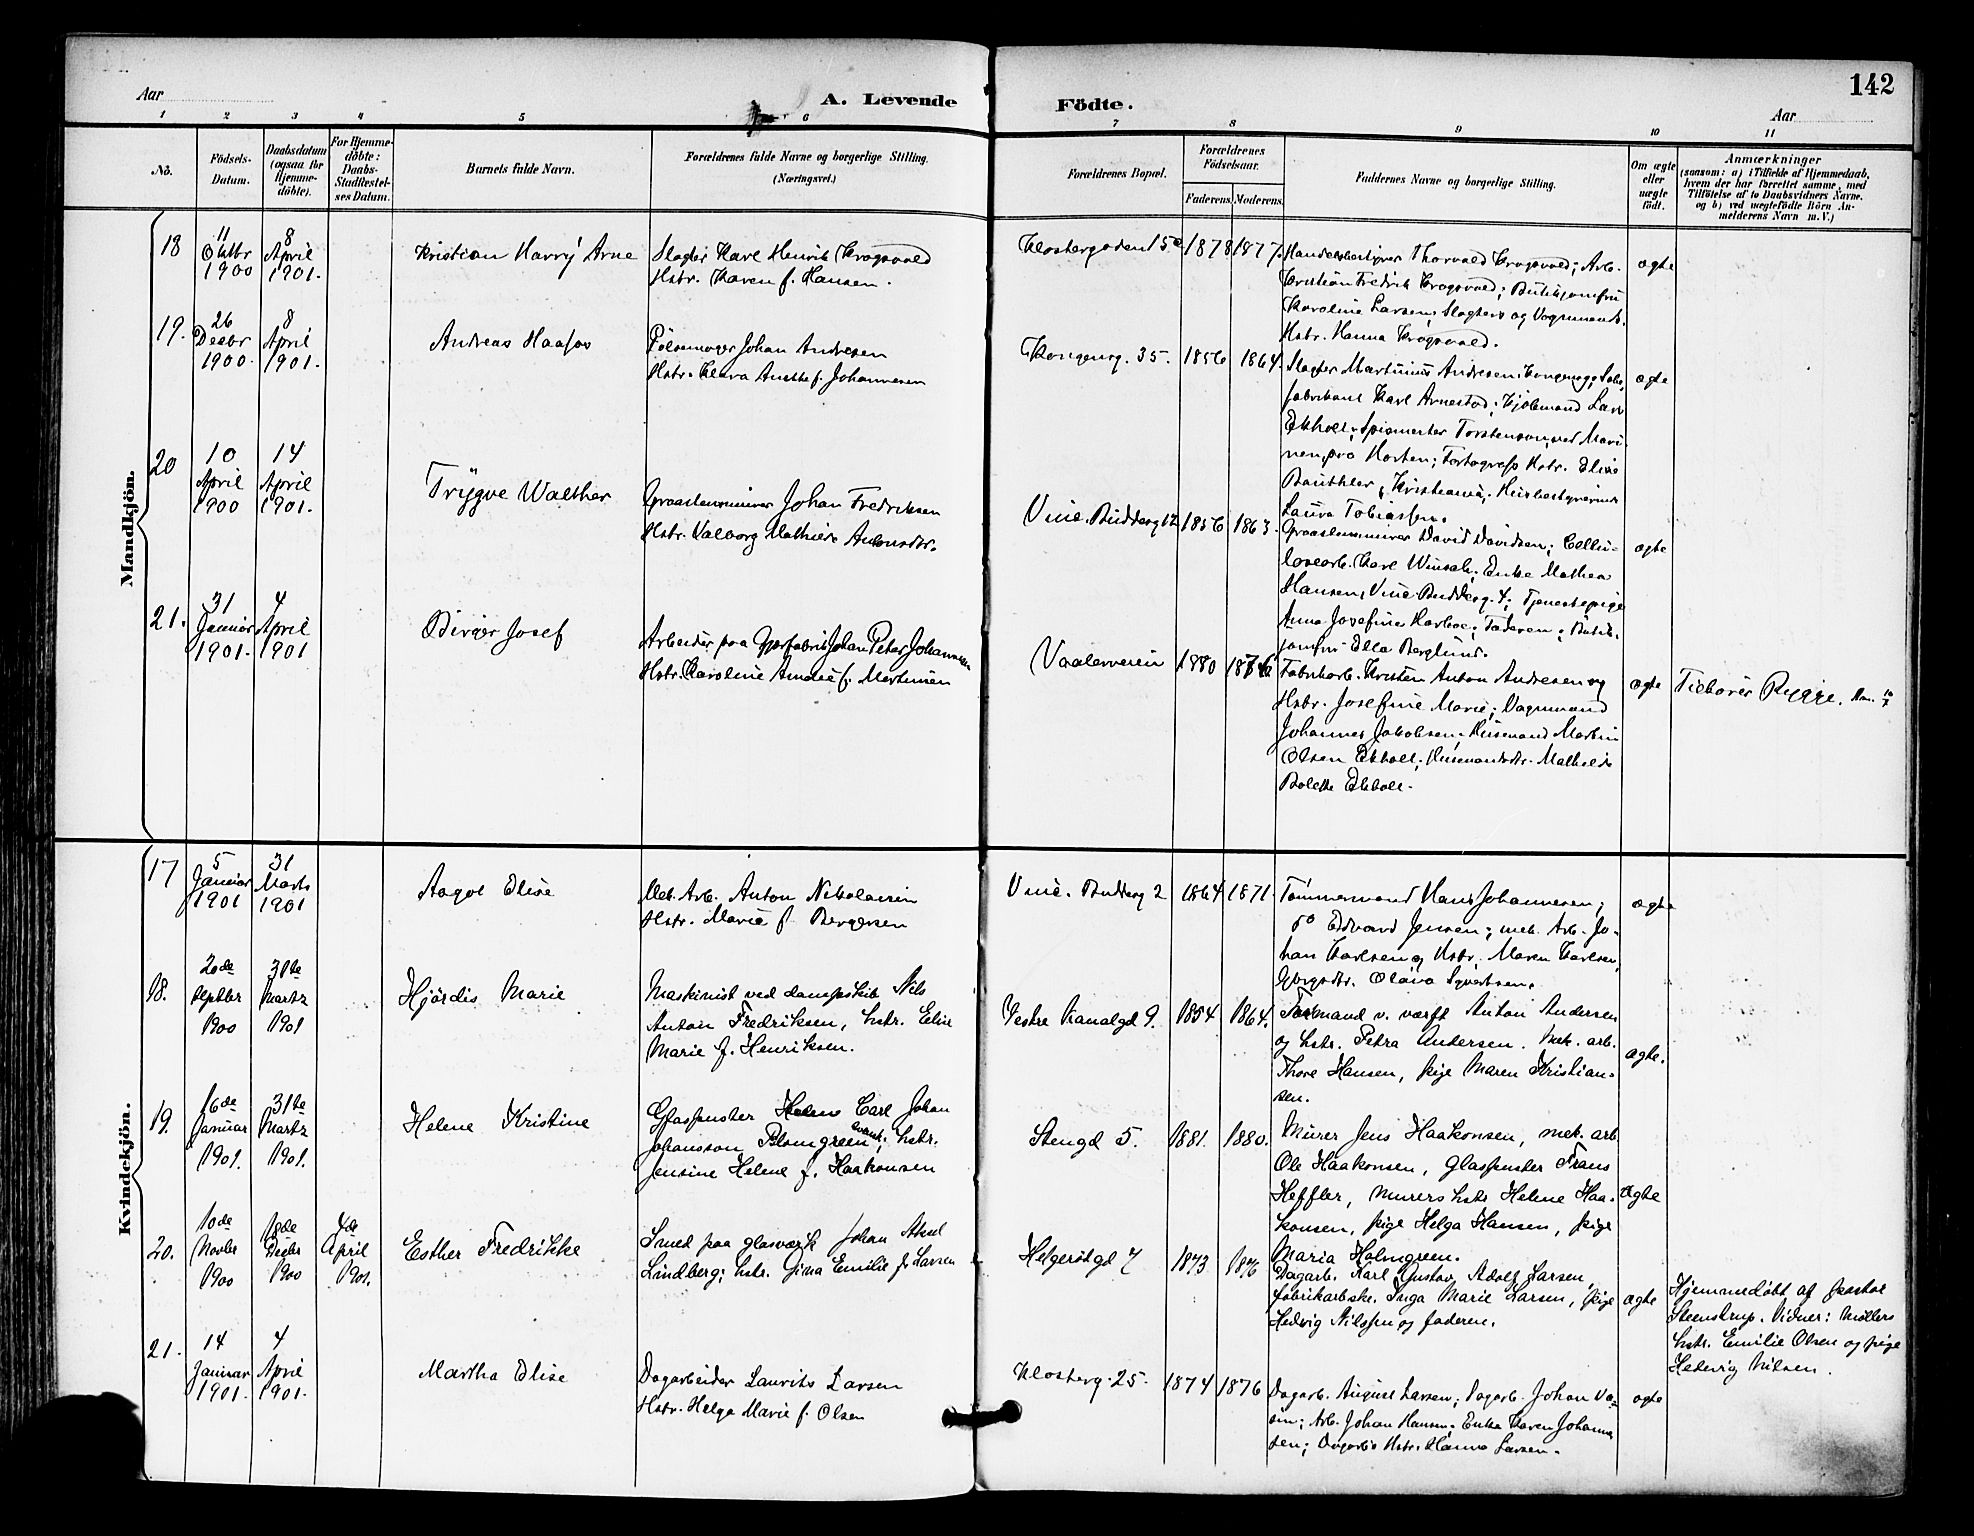 142
Aar
A. Levende Födte.
Aar
1 2 3 4 5 6 7 8 9 10 11
No.
Födsels-
Datum.
Daabsdatum
(ogsaa for
Hjemme-
döbte).
For Hjemme-
döbte:
Daabs-
Stadfæstel-
ses Datum.
Barnets fulde Navn.
Forældrenes fulde Navne og borgerlige Stilling.
(Næringsvei.)
Forældrenes Bopæl.
Forældrenes
Födselsaar.
Faderens. Moderens.
Faddernes Navne og borgerlige Stilling.
Om ægte
eller
uægte
födt.
Anmærkninger
(saasom: a) i Tilfælde af Hjemmedaab,
hvem der har forrettet samme, med
Tilföielse af to Daabsvidners Navne,
og b) ved uægtefödte Börn An-
melderens Navn m. V.)
Mandkjön.
18
11
Oktbr
1900
8
April
1901.
Kristian Harry Arne
Slagter Karl Henrik Krogsvold
Hstr. Karen f. Hansen.
Klostergaden 15
1878 1877.
Handelsbestyrer Thorvald Krogsvold; Arb.
Kristian Fredrik Krogsvold; Butikjomfru
Karoline Larsen; Slagters og Vognmands.
Hstr. Hanna Krogsvold.
ægte
19.
26
Decbr
1900.
8
April
1901.
Andreas
Pölsemager Johan Andresen
Hstr. Klara Anette f. Johannesen
Kongensg. 35.
1856 1864.
Slagter Martinius Andresen,
fabrikant Karl Arnestad; Lars
Ekholt; Torstenson, ved Mari-
nen, paa Horten; Fotografs Hstr. Elise
Kristiania; Husbestyrerinde
Laura Tobiassen.
ægte
20
10
April
1900
14
April
1901.
Trygve Walther
Graastensmurer Johan Fredriksen
Hstr. Valborg Mathilde Antonsdtr.
Vinc. Buddesg 12
1856 1863.
Graastensmurer David Davidsen; Cellu-
losearb. Karl Enke Mathea
Hansen, Vinc. Buddesg. 4; Tjenestepige
Anna Josefine Faderen; Butik-
jomfru Ella Berglund.
ægte
21.
31
Januar
1901.
4
April
1901
Birger Josef
Arbeider paa Johan Peter Johannesen
Hstr. Karoline Amalie f. Martinsen
Vaalerveien
1880 1876
Fabrikarb. Kristen Anton Andresen og
Hstr. Josefine Marie; Vognmand
Johannes Jakobsen; Husmand Martin
Olsen Ekholt; Husmandsdtr. Mathilde
Bolette Ekholt.
ægte
Tilhører Rygge.
Kvindekjön.
17
5
Januar
1901
31
Marts
1901
Aagot Elise
Mek. Arb. Anton Nikolaisen
Hstr. Marie f. Bergersen
Vinc. Buddesg 2
1864 1871.
Tømmermand Hans Johannesen;
do Edvard Jensen; mek. Arb. Jo-
han Karlsen og Hstr. Maren Karlsen,
Olava Syvertsen.
ægte
18.
20de
Septbr
1900
31te
Martz
1901
Hjördis Marie
Maskinist ved dampskib Nils
Anton Fredriksen, hstr. Eline
Marie f. Henriksen.
Vestre Kanalgd 9.
1854 1864.
Formand v. værft Anton Andersen
og hstr. Petra Andersen. Mek. arb.
Thore Hansen, pige Maren Kristian-
sen.
ægte.
19.
16de
Januar
1901.
31te
Martz
1901.
Helene Kristine
Glaspuster Carl Johan
Johansson Blomgreen, svensk; hstr.
Jensine Helene f. Haakonsen
Stengd 5.
1881. 1880.
Murer Jens Haakonsen, mek. arb.
Ole Haakonsen, glaspuster Frans
Heffler, murers hstr Helene Haa-
konsen, pige Helga Hansen, pige
Maria Holmgreen.
ægte
20.
10de
Novbr
1900
18de
Decbr
1900
4de
April
1901.
Esther Fredrikke
Smed paa glasværk Johan Aksel
Lindberg; hstr. Gina Emilie f. Larsen
Helgerödgd 7
1873 1876
Dagarb. Karl Gustav Adolf Larsen,
fabrikarbske. Inga Marie Larsen, pige
Hedvig Nilssen og faderen.
ægte
Hjemmedöbt af pastor
Steenstrup. Vidner: Möllers
hstr. Emilie Olsen og pige
Hedevig Nilsen.
21.
14
Januar
1901.
4
April
1901.
Martha Elise
Dagarbeider Laurits Larsen
Hstr. Helga Marie f. Olsen
Klosterg. 25.
1874 1876
Dagarb. August Larsen; Dagarb. Johan
Arb. Johan Hansen; Enke Karen Johanne-
sen; Dagarbs Hstr. Hanna Larsen.
ægte